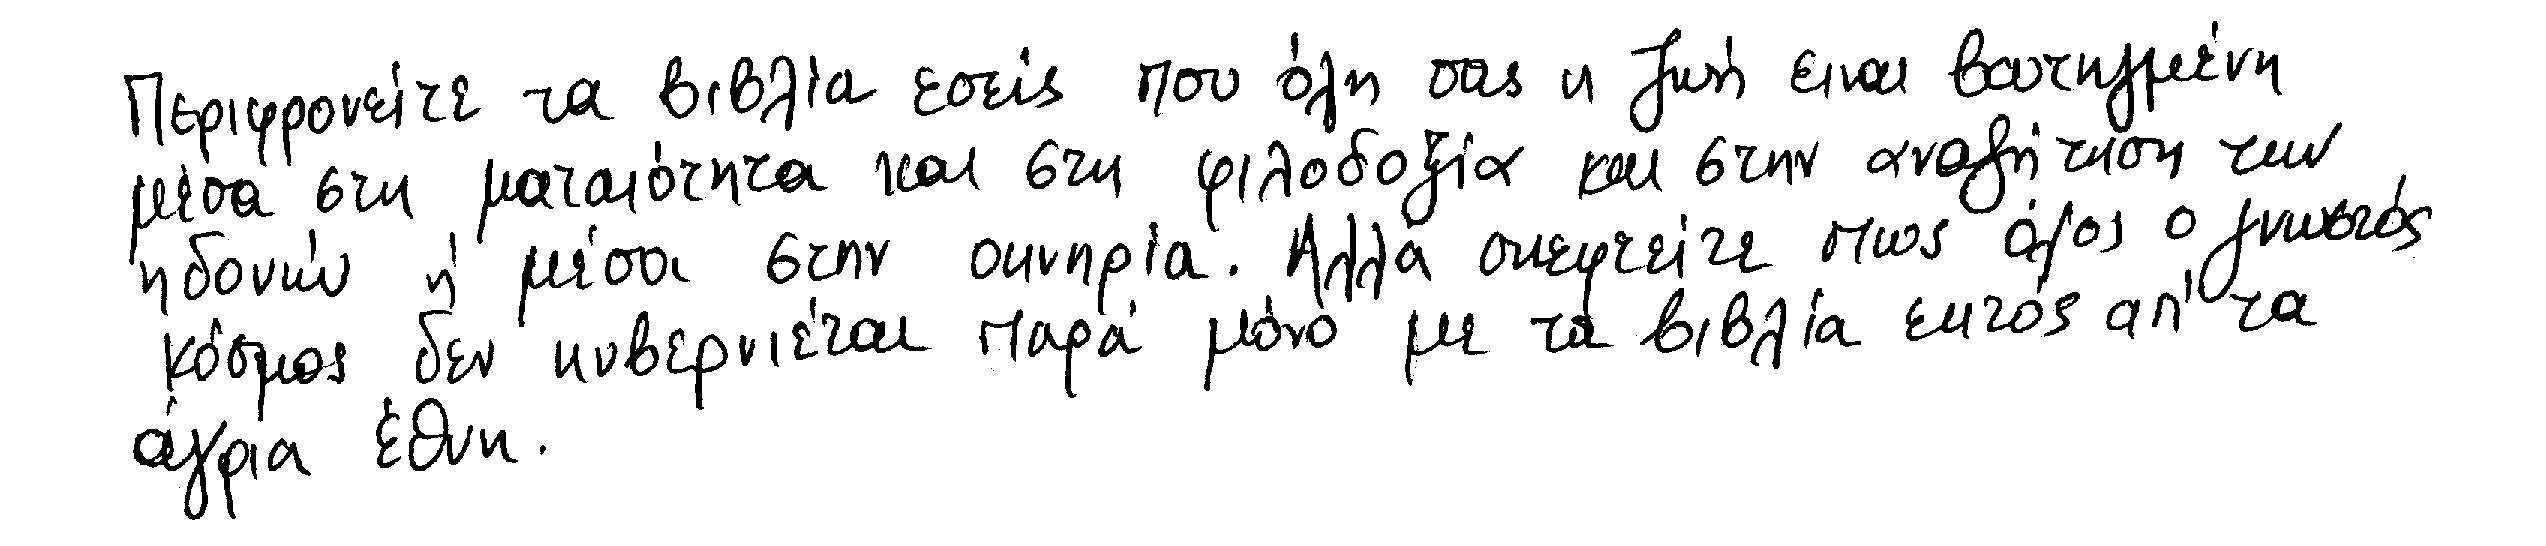 Περιφρονείτε τα βιβλία εσείς που όλη σας η ζωή ειναι βουτηγμένη
μέσα στη ματαιότητα και στη φιλοδοξία και στην αναζήτηση των
ηδονών ή μέσα στην οκνηρία. Αλλά σκεφτείτε πως όλος ο γνωστός
κόσμος δεν κυβερνιέται παρά μόνο με τα βιβλία εκτός απ' τα
άγρια έθνη.